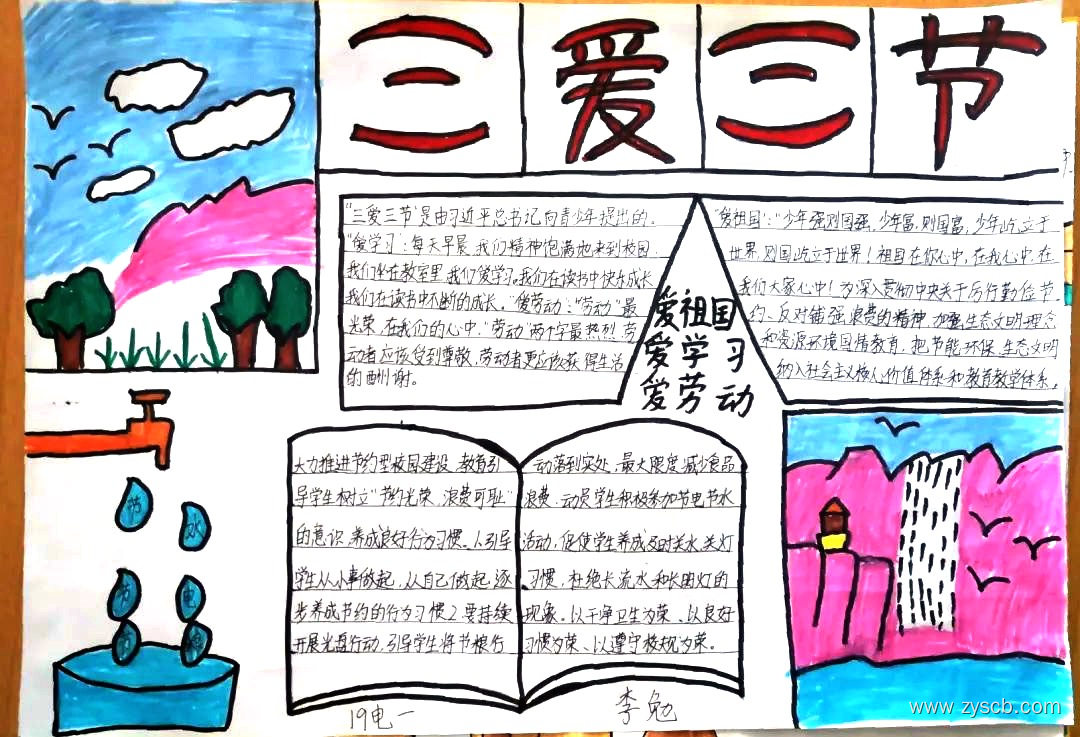 三爱三节
"三爱三节"是由习近平总书记向青少年提出的。
"爱学习:每天早晨,我们精神饱满地来到校园,
我们坐在教室里,我们爱学习。我们在读书中快乐成长,
我们在读书中不断的成长。"爱劳动:"劳动"最
光荣,在我们的心中,"劳动"两个字最热烈,劳
动者应该受到尊敬,劳动者更应该获得生活
的酬谢。
爱祖国
爱学习
爱劳动
"爱祖国":"少年强则国强,少年富,则国富,少年屹立于
世界,则国屹立于世界!祖国在你心中,在我心中,在
我们大家心中!为深入贯彻中央关于厉行勤俭节
约、反对铺张浪费的精神,加强生态文明理念
和资源环境国情教育,把节能环保、生态文明
纳入社会主义核心价值体系和教育教学体系。
大力推进节约型校园建设,教育引
导学生树立"节约光荣、浪费可耻"
的意识,养成良好行为习惯。1.引导
学生从小事做起,从自己做起,逐
步养成节约的行为习惯2.要持续
开展光盘行动,引导学生将节粮行
动落到实处,最大限度减少食品
浪费,动员学生积极参加节电节水
活动,促使学生养成及时关水,关灯
习惯,杜绝长流水和长明灯的
现象。以干净卫生为荣、以良好
习惯为荣、以遵守校规为荣。
节
水
节
电
节
粮
19电一
李勉
www.zyscb.com